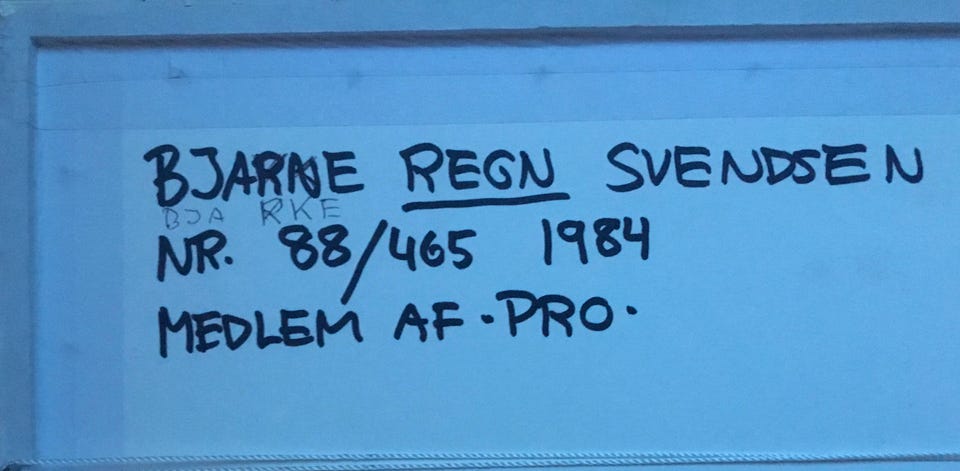 BJARNE REGN SVENDSEN
BJA RKE
NR. 88/465 1984
MEDLEM AF ·PRO·